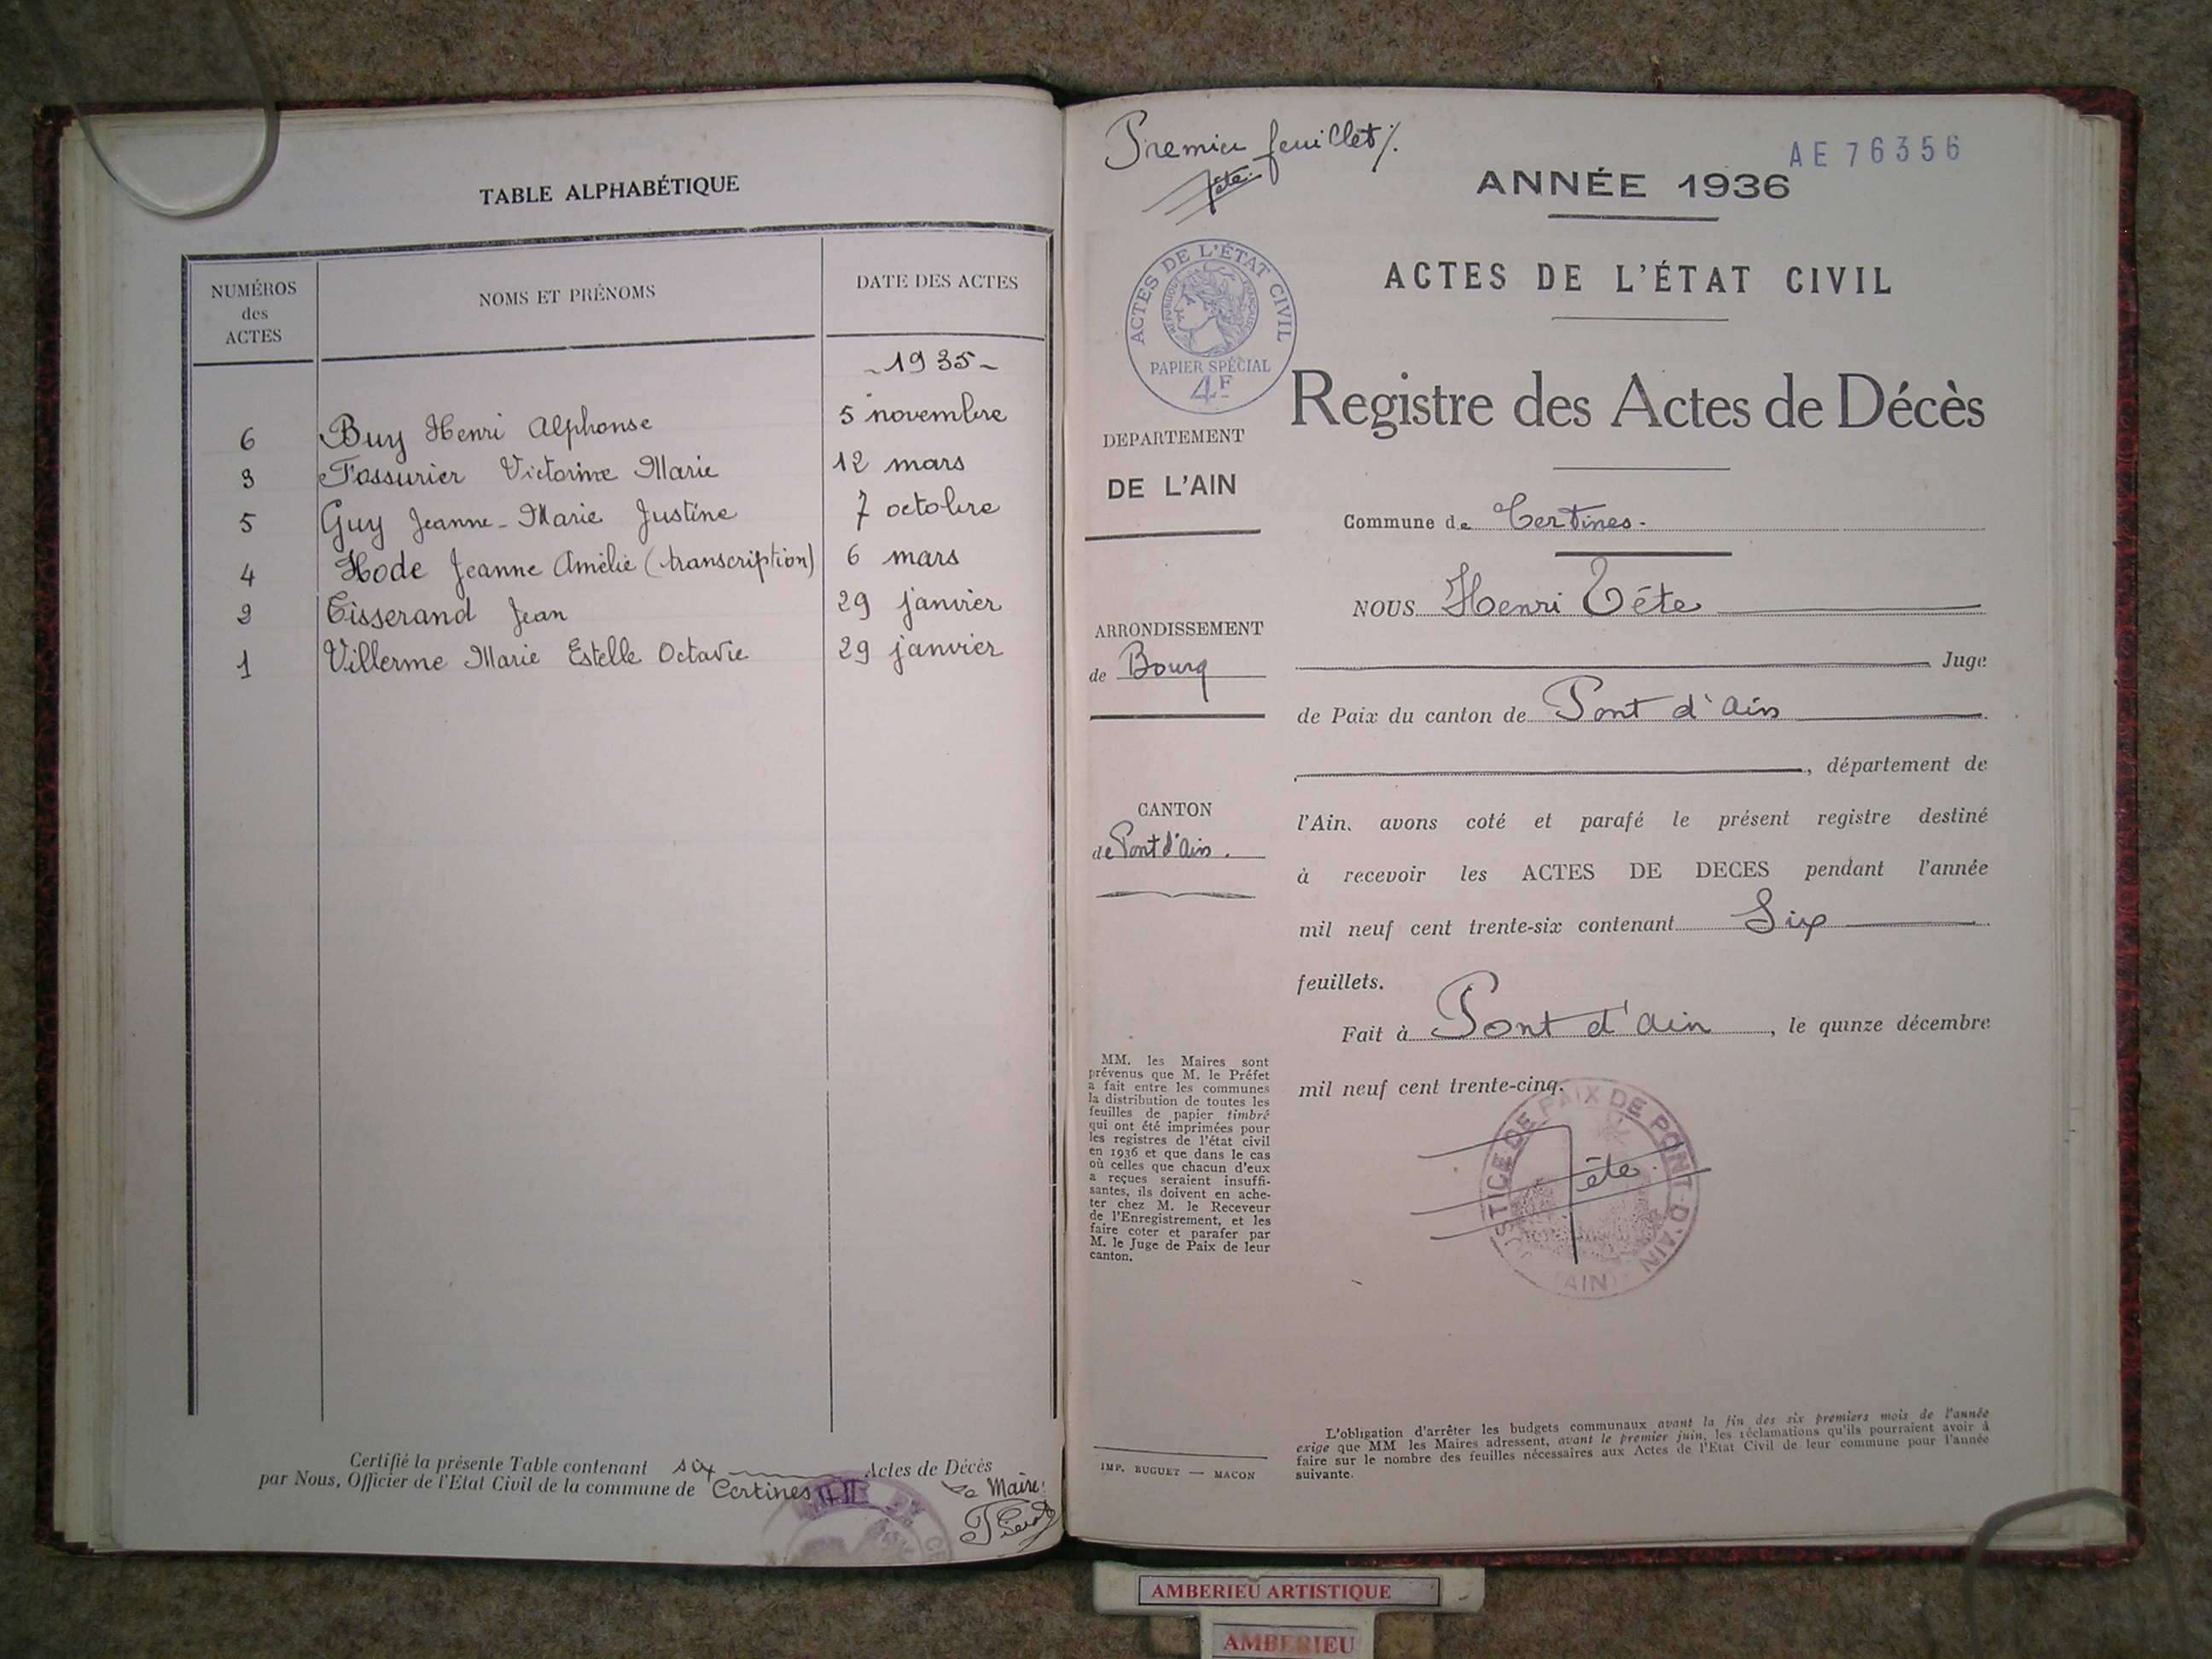 TABLE ALPHABÉTIQUE
NUMÉROS
des
ACTES
NOMS ET PRÉNOMS
DATE DES ACTES
1935
6 Buy Henri Alphonse 5 novembre
3 Fossurier Victorine Marie 12 mars
5 Guy Jeanne-Marie Justine 7 octobre
4 Hode Jeanne Amélie (transcription) 6 mars
2 Tisserand Jean 29 janvier
1 Villerme Marie Estelle Octavie 29 janvier
Certifié la présente Table contenant six Actes de Décès
par Nous, Officier de l'Etat Civil de la commune de Certines
Le Maire:
Premier feuillet
Tête
AE 76356
ANNÉE 1936
ACTES DE L'ÉTAT CIVIL
RÉPUBLIQUE FRANÇAISE
PAPIER SPÉCIAL
4F
ACTES DE L'ÉTAT CIVIL
Registre des Actes de Décès
DEPARTEMENT
DE L'AIN
ARRONDISSEMENT
de Bourg
CANTON
de Pont d'Ain.
Commune de Certines.
NOUS Henri Tête
Juge
de Paix du canton de Pont d'Ain
, département de
l'Ain. avons coté et parafé le présent registre destiné
à recevoir les ACTES DE DECES pendant l'année
mil neuf cent trente-six contenant Six
feuillets.
Fait à Pont d'Ain, le quinze décembre
mil neuf cent trente-cinq.
Tête.
JUSTICE DE PAIX DE PONT-D'AIN
(AIN)
MM. les Maires sont
prévenus que M. le Préfet
a fait entre les communes
la distribution de toutes les
feuilles de papier timbré
qui ont été imprimées pour
les registres de l'état civil
en 1936 et que dans le cas
où celles que chacun d'eux
a reçues seraient insuffi-
santes, ils doivent en ache-
ter chez M. le Receveur
de l'Enregistrement, et les
faire coter et parafer par
M. le Juge de Paix de leur
canton.
IMP. BUGUET — MACON
L'obligation d'arrêter les budgets communaux avant la fin des six premiers mois de l'année
exige que MM les Maires adressent, avant le premier juin, les réclamations qu'ils pourraient avoir à
faire sur le nombre des feuilles nécessaires aux Actes de l'Etat Civil de leur commune pour l'année
suivante.
AMBERIEU ARTISTIQUE
AMBERIEU